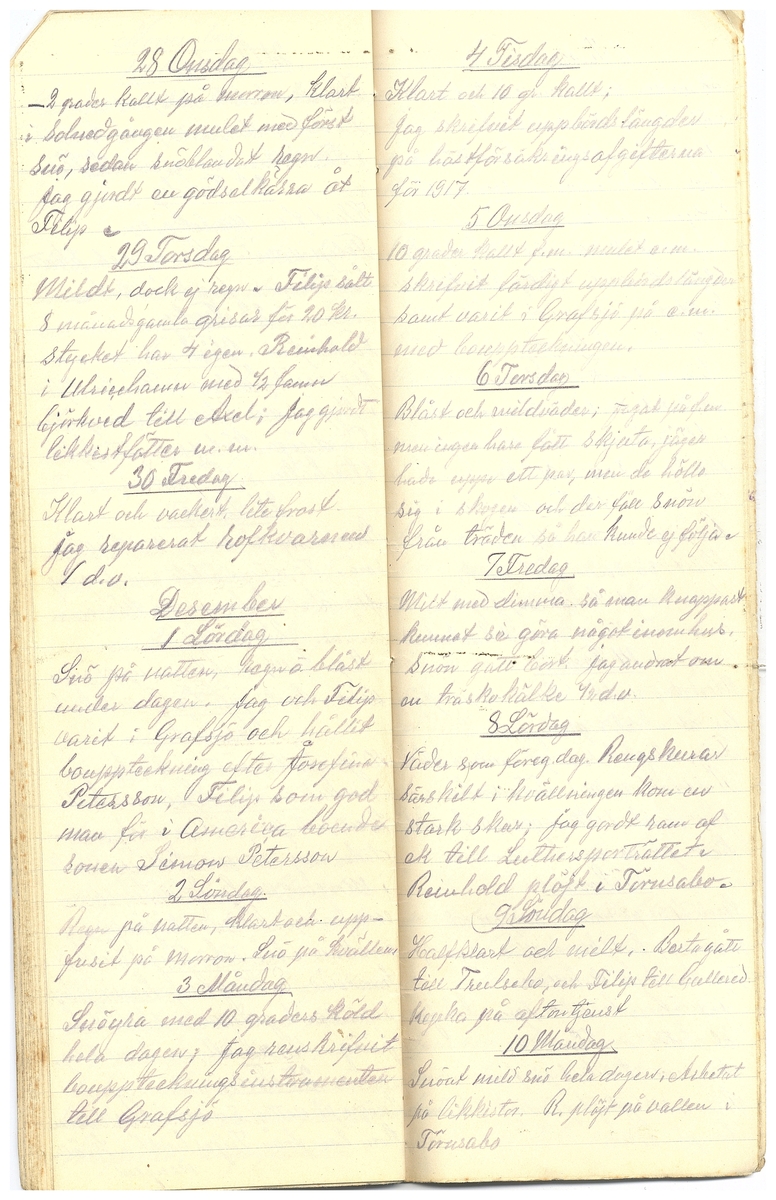 28 Onsdag
-2 grader kallt på morron, klart
i solnedgången mulet med först
snö, sedan snöblandat regn.
Jag gjordt en gödselkärra åt
Filip
29 Torsdag
Mildt, dock ej regn. Filip sålt
8 månadsgamla grisar för 20 kr.
stycket har 4 egen. Reinhold
i Ulricehamn med 1/2 famn
björkved till Axel; Jag gjordt
likkistfötter m.m.
30 Fredag
Klart och vackert, lite frost.
jag reparerat kofkvarnen
1 d.v.
Desember
1 Lördag
Snö på natten, regn o blåst
under dagen. Jag och Filip
varit i Grafsjö och hållit
bouppteckning efter Josefina
Petersson, Filip som god
man för i America boende
sonen Simon Petersson
2 Söndag.
Regn på natten, klart och upp-
frusit på morron. Snö på kvällen
3 Måndag
Snöyra med 10 graders köld
hela dagen; Jag renskrifvit
bouppteckningsinstrumenten
till Grafsjö
4 Tisdag
Klart och 10 gr kallt;
Jag skrifvit uppbördslängder
på hästförsäkringsafgifterna
för 1917.
5 Onsdag
10 grader kallt f.m. mulet e.m.
skrifvit färdigt uppbördslängder
samt varit i Grafsjö på e.m.
med bouppteckningen.
6 Torsdag
Blåst och mildväder; jagat på f.m
men ingen hare fått skjuta, jägar
hade uppe ett par, men de höllo
sig i skogen och der föll snön
från träden så han kunde ej följa.
7 Fredag
Milt med dimma så man knappast
kunnat se göra något inomhus.
snön gått bort. jag ändrat om
en träskokälke 1/2 d.v.
8 Lördag
Väder som föreg. dag. Rengskurar
särskilt i kvällningen kom en
stark skur; jag gordt ram af
ek till Luthersporträttet.
Reinhold plöjt i Törnsabo.
9 Söndag
Halfklart och milt. Berta gått
till Trulsebo, och Filip till Gullered
kyrka på aftontjenst
10 Måndag
Snöat mild snö hela dagen; Arbetat
på likkistor. R. plöjt på vallen i
Törnsabo